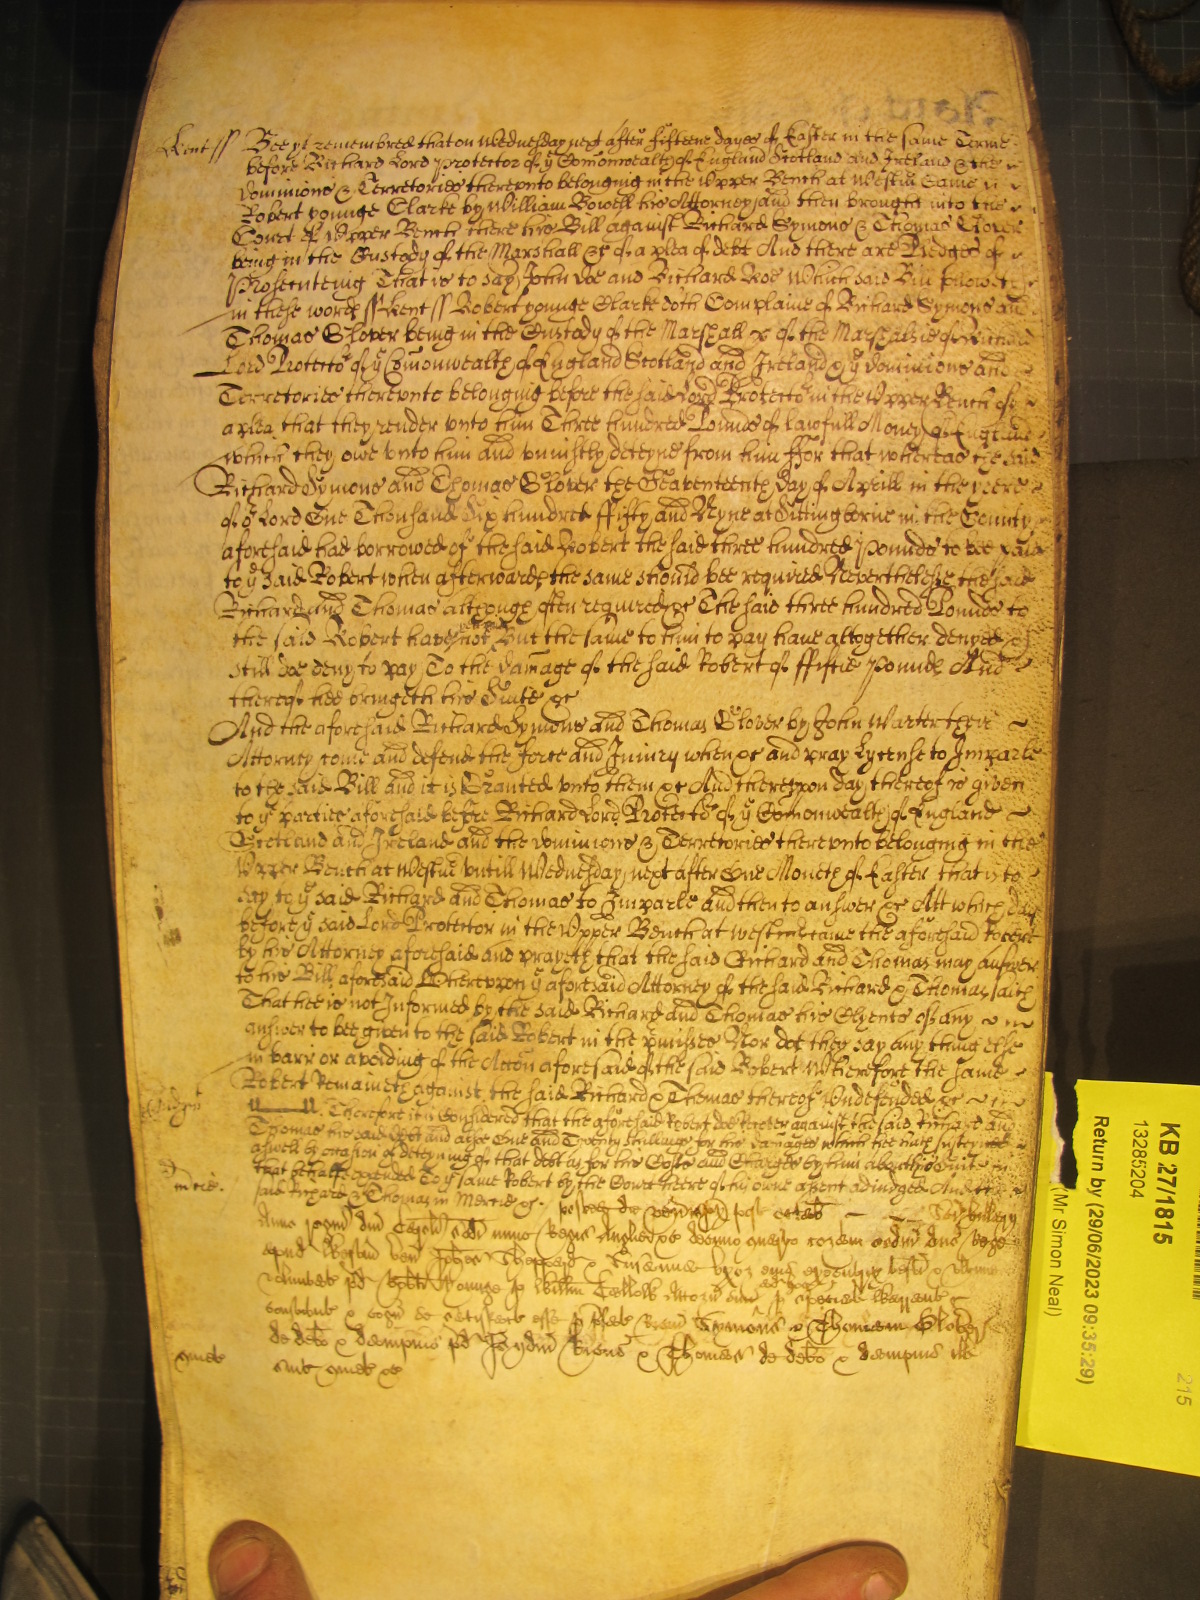 Kent ss Bee yt remembred that on Wednesday next after fifteene dayes of Easter in the same Terme
before Richard Lord Protector of ye Comonwealth of England Scotland and Ireland & the
dominions & Territories thereunto belonging in the Upper Bench at Westm Came
Robert younge Clarke by William Rowell his Attorney and then brought into the
Court of Upper Bench there his Bill against Richard Symons & Thomas Glover
being in the Custody of the Marshall &c of a plea of debt And there are Pledges of
Prosecuteing That is to say John doe and Richard Roe Which said Bill followeth
in these words ss Kent ss Robert younge Clarke doth Complaine of Richard Symons and
Thomas Glover being in the Custody of the Marshall &c of the Marshalsie of Richard
Lord Protector of ye Comonwealth of England Scotland and Ireland & ye dominions and
Territories thereunto belonging before the said Lord Protector in the Upper Bench of
a plea that they render unto him Three hundred Pounds of lawfull Money of England
which they owe unto him and uniustly deteyne from him ffor that whereas the said
Richard Symons and Thomas Glover the Seaventeenth day of Aprill in the yeere
of or Lord One Thousand Six hundred ffifty and Nyne at Sittingborne in the County
aforesaid had borrowed of the said Robert the said three hundred pounds to bee paid
to ye said Robert when afterwards the same should bee required Neverthelesse the said
Richard and Thomas although often required &c The said three hundred Pounds to
the said Robert have not but the same to him to pay have altogether denyed &
still doe deny to pay To the damage of the said Robert of ffiftie pounds And
thereof hee bringeth his Suite &c
And the aforesaid Richard Symons and Thomas Glover by John Warter their
Attorney come and defend the force and Iniury when &c and pray Lycense to Imparle
to the said Bill and it is Granted unto them &c And thereupon day thereof is given
to ye parties aforesaid before Richard Lord Protector of ye Comonwealth of England
Scotland and Ireland and the dominions & Territories thereunto belonging in the
Upper Bench at Westm untill Wednesday next after One Moneth of Easter that is to
say to ye said Richard and Thomas to Imparle and then to answer &c Att which day
before ye said Lord Protector in the Upper Bench at Westm came the aforesaid Robert
by his Attorney aforesaid and prayeth that the said Richard and Thomas may answer
to his Bill aforesaid Whereupon ye aforesaid Attorney of the said Richard & Thomas saith
That hee is not Informed by the said Richard and Thomas his Clyents of any
answer to bee given to the said Robert in the pmisses Nor doe they say any thing else
in barr or avoiding of the Accon aforesaid of the said Robert Wherefore the same
Robert Remaineth against the said Richard & Thomas thereof Undefended &c
Therefore it is Considered that the aforesaid Robert doe Recover against the said Richard and
Thomas the said debt and alsoe One and Twenty shillings for his damages which hee hath susteyned
aswell by occasion of deteyning of that debt as for his Costs and Charges by him about his suite in
that behalfe expended To ye same Robert by the Court heere of his owne assent adiudged And the
said Richard & Thomas in Mercie &c
in mie.
postea die
Anno
Robti Younge p Willm
Symons & Thomam Glover
de debo & dampnis pd & Thomas de debo & dampnis
quiet sint quiet &c
KB 27/1815
13285204
Return by (29/06/2023 09:35:29)
(Mr Simon Neal)
215